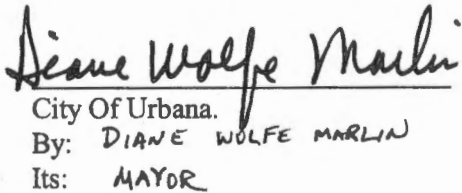 Diane Wolfe Marlin
City Of Urbana.
By: DIANE WOLFE MARLIN
Its: MAYOR